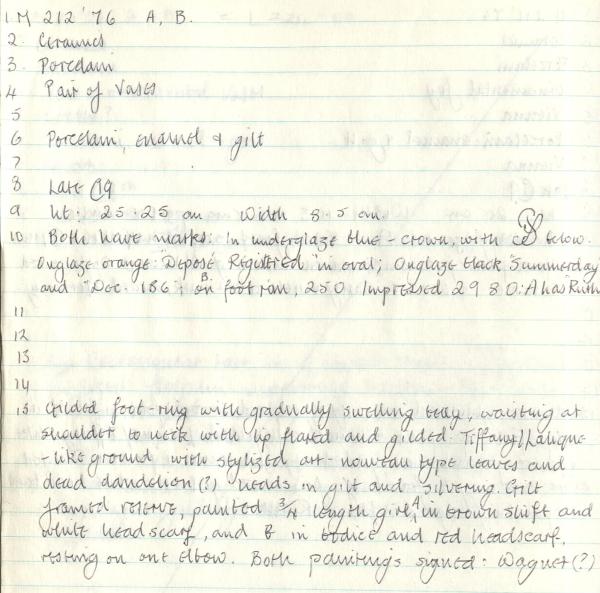 1 M 212 '76 A, B.
2. Ceramics
3. Porcelain
4 Pair of Vases
5
6 Porcelain, enamel & gilt
7
8 Late C19
9 ht: 25.25 cm Width 8.5 cm
10 Both have marks: In underglaze blue - crown, with below.
Onglaze orange: Deposé Registered" in oval; Onglaze black "Summerday"
and "Dec. 186"; on B foot rim, 250 Impressed 2980: A has
11
12
13
14
15 Gilded foot-ring with gradually swelling body, waisting at
shoulder to neck with lip flared and gilded. Tiffany/Lalique
-like ground with stylized art-nouveau type leaves and
dead dandelion (?) heads in gilt and silvering. Gilt
framed reserve, painted 3/4 length girl, A in brown shift and
white headscarf, and B in bodice and red headscarf,
resting on one elbow. Both paintings signed: Wagner (?)